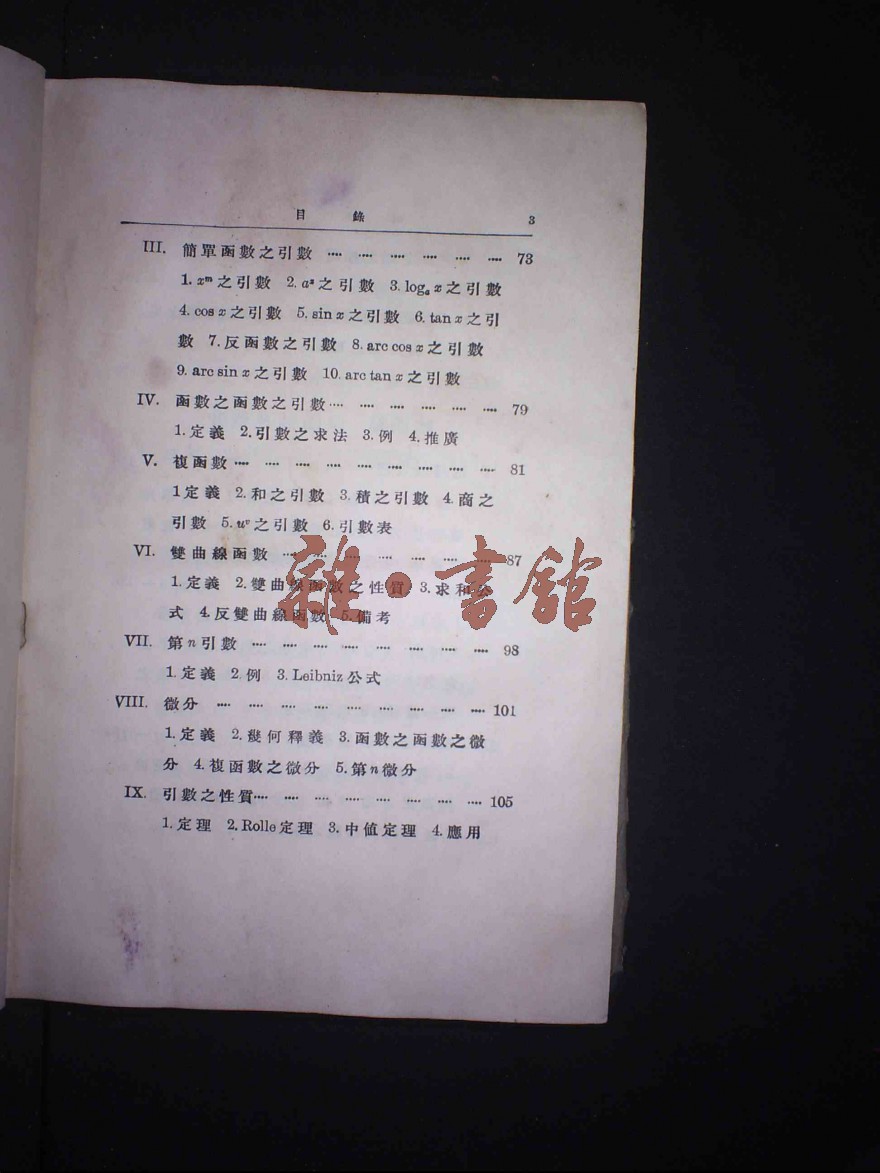 目 錄 3
III. 簡單函數之引數 ···· ···· ···· ···· ···· ···· 73
1. xᵐ之引數 2. aˣ之引數 3. logₐ x之引數
4. cos x之引數 5. sin x之引數 6. tan x之引
數 7. 反函數之引數 8. arc cos x之引數
9. arc sin x之引數 10. arc tan x之引數
IV. 函數之函數之引數 ···· ···· ···· ···· ···· ···· 79
1. 定義 2. 引數之求法 3. 例 4. 推廣
V. 複函數 ···· ···· ···· ···· ···· ···· ···· ···· ···· 81
1 定義 2. 和之引數 3. 積之引數 4. 商之
引數 5. uᵛ之引數 6. 引數表
VI. 雙曲線函數 ···· ···· ···· ···· ···· ···· ···· 87
1. 定義 2. 雙曲線函數之性質 3. 求和公
式 4. 反雙曲線函數 5. 備考
雜·書館
VII. 第n引數 ···· ···· ···· ···· ···· ···· ···· ···· 98
1. 定義 2. 例 3. Leibniz公式
VIII. 微分 ···· ···· ···· ···· ···· ···· ···· ···· ···· 101
1. 定義 2. 幾何釋義 3. 函數之函數之微
分 4. 複函數之微分 5. 第n微分
IX. 引數之性質 ···· ···· ···· ···· ···· ···· ···· ···· 105
1. 定理 2. Rolle定理 3. 中値定理 4. 應用